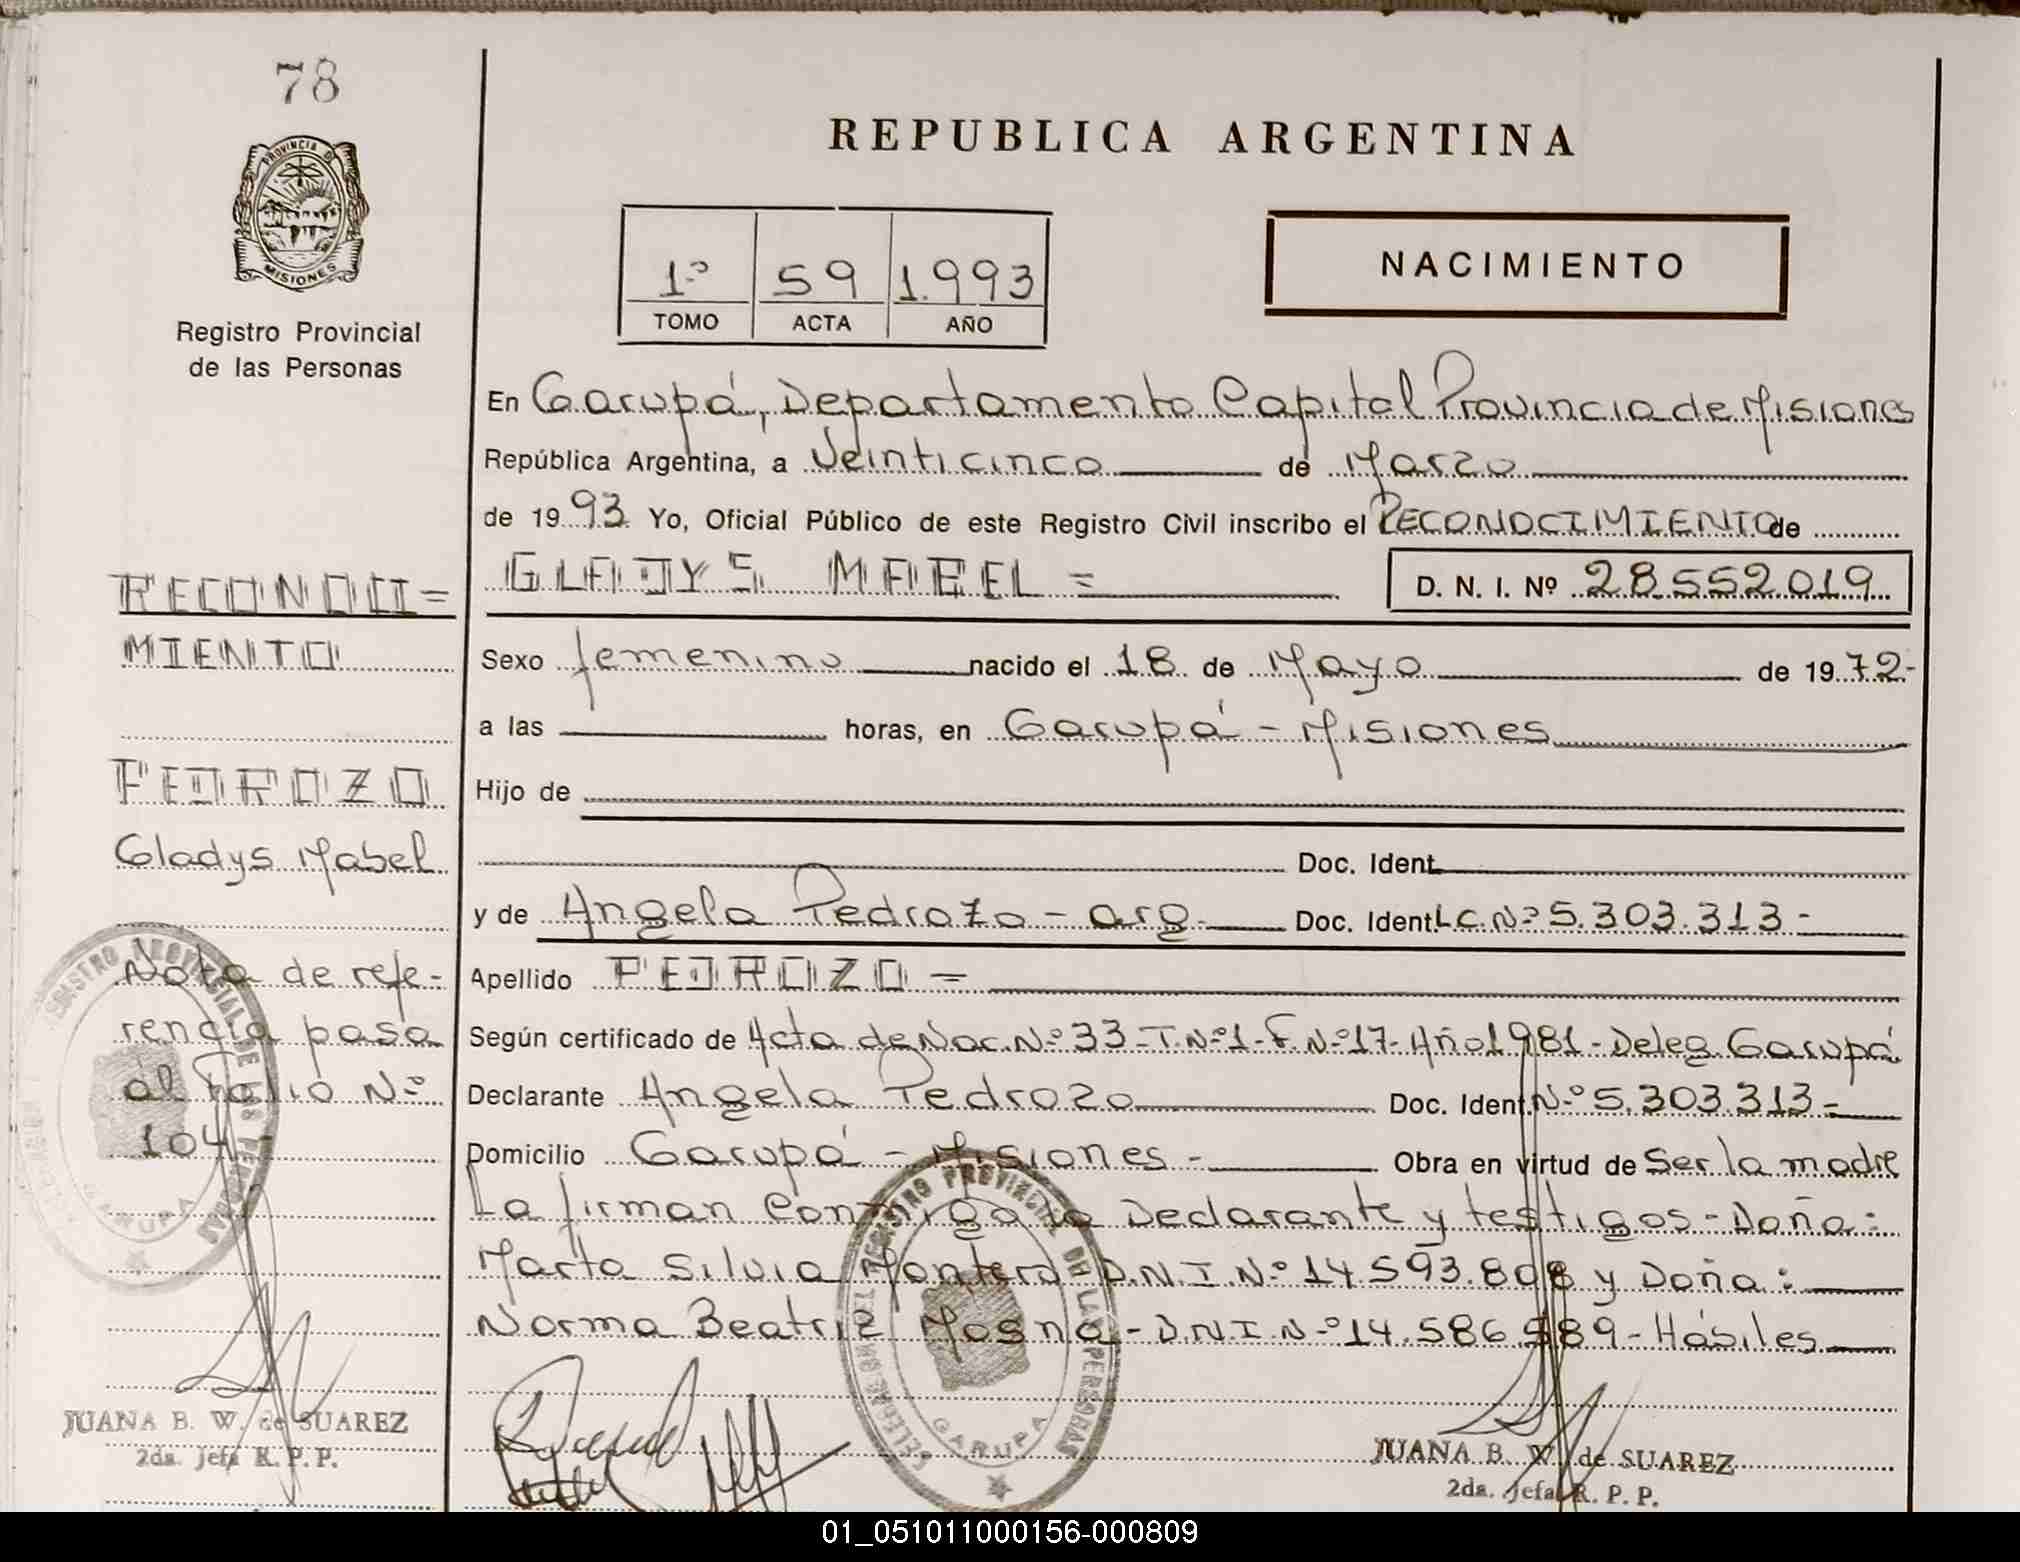 78
PROVINCIA DE
MISIONES
Registro Provincial
de las Personas
RECONOCI=
MIENTO
PEDROZO
Gladys Mabel
Nota de refe-
rencia pasa
al Folio Nº
104
JUANA B. W. de SUAREZ
2da. Jefa R. P. P.
REPUBLICA ARGENTINA
1º 59 1.993
TOMO ACTA AÑO
NACIMIENTO
En Garupá, Departamento Capital Provincia de Misiones
República Argentina, a Veinticinco de Marzo
de 1993 Yo, Oficial Público de este Registro Civil inscribo el RECONOCIMIENTO de
GLADYS MABEL = D. N. I. Nº 28.552.019
Sexo femenino nacido el 18 de Mayo de 1972-
a las horas, en Garupá - Misiones
Hijo de
Doc. Ident.
y de Angela Pedrozo - arg. Doc. Ident L.C.Nº 5.303.313-
Apellido PEDROZO =
Según certificado de Acta de Nac. Nº 33-T.Nº1-F.Nº17-Año1981-Deleg. Garupá
Declarante Angela Pedrozo Doc. Ident. Nº 5.303.313-
Domicilio Garupá - Misiones - Obra en virtud de Ser la madre
La firman Conmigo la Declarante y testigos - Doña:
Marta Silvia Montero D.N.I.Nº 14.593.808 y Doña:
Norma Beatriz Mosna - D.N.I.Nº 14.586.589 - Hábiles
REGISTRO PROVINCIAL DE LAS PERSONAS
GARUPA
JUANA B. W. de SUAREZ
2da. Jefa R. P. P.
01_051011000156-000809